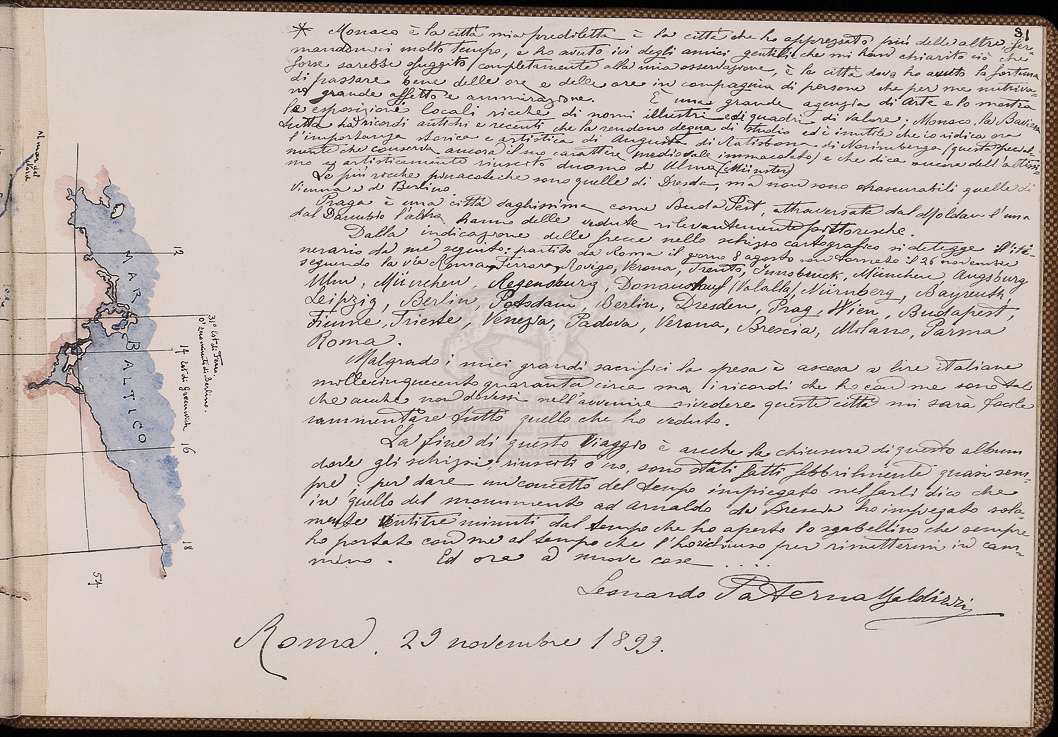 31
* Monaco è la città mia prediletta è la città che ho apprezzato più delle altre,
mandomici molto tempo, e ho avuto ivi degli amici gentili che mi han chiarito ciò che
forse sarebbe sfuggito completamente alla mia osservazione, è la città dove ho avuto la fortuna
di passare bene delle ore e delle ore in compagnia di persone che per me nutriva-
no grande affetto e ammirazione. È una grande agenzia di Arte e lo mostra
la esposizione locali ricche di nomi illustri ed quadri di valore. Monaco, la Baviera
tutta ha ricordi antichi e recenti che la rendono degna di studio ed è inutile che io ridica ora
l'importanza storica e artistica di Augusta di Ratisbona di Norimberga (questa special-
mente che conserva ancora il suo carattere medioevale immacolato) e che dica ancora dell'
mo ed artisticamente riuscito duomo di Ulma (Münster)
Le più ricche pinacoteche sono quelle di Dresda, ma non sono trascurabili quelle di
Vienna e di Berlino.
Praga è una città vaghissima come Buda Pest, attraversate dal Moldava l'una
dal Danubio l'altra hanno delle vedute rilevantemente pittoresche.
Dalla indicazione delle frecce nello schizzo cartografico si detegge l'iti-
nerario da me seguito: partito da Roma il giorno 8 agosto son tornato il 26 novembre
seguendo la via Roma, Ferrara, Rovigo, Verona, Trento, Innsbruck, München, Augsburg
Ulm, München, Regensburg, Donaustauf (Valalla) Nürnberg, Bayreuth,
Leipzig, Berlin, Potsdam, Berlin, Dresden, Prag, Wien, Budapest,
Fiume, Trieste, Venezia, Padova, Verona, Brescia, Milano, Parma
Roma.
Malgrado i miei grandi sacrifici la spesa è ascesa a lire italiane
millecinquecento quaranta circa ma i ricordi che ho con me sono tali
che anche non dovessi nell'avvenire rivedere queste città mi sarà facile
rammentare tutto quello che ho veduto.
La fine di questo viaggio è anche la chiusura di questo album
dove gli schizzi, riusciti o no, sono stati fatti febbrilmente quasi sem-
pre. per dare un concetto del tempo impiegato nel farli dico che
in quello del monumento ad Arnaldo da Brescia ho impiegato sola-
mente ventitre minuti dal tempo che ho aperto lo sgabellino che sempre
ho portato con me al tempo che l'ho richiuso per rimettermi in cam-
mino. Ed ora a nuove cose .....
Leonardo Paternà Baldizzi
Roma. 29 novembre 1899.
MAR BALTICO
12
14 Est di Greenwich
16
18
54
31° Est di Ferro
Al mar del
Nord